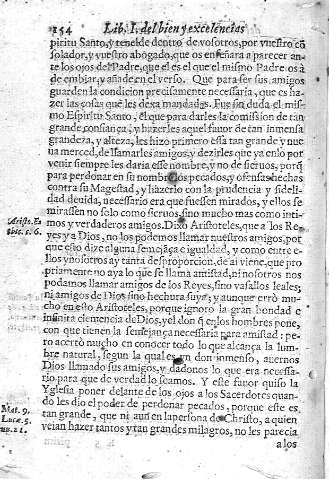 154 Lib. I. del bien y excelencias
piritu Santo, y tenelde dentro de vosotros, por vuestro cõ
solador, y vuestro abogado, que os enseñara a parecer an-
te los ojos del Padre, que el es el que el mismo Padre os à
de embiar, y añade en el verso. Que para ser sus amigos
guarden la condicion precisamente necessaria, que es ha-
zer las cosas que les dexa mandadas. Fue sin duda el mis-
mo Espiritu Santo, el que para darles la comission de tan
grande confiança, y hazerles aquel fauor de tan inmensa
grandeza, y alteza, les hizo primero esta tan grande y nue
ua merced, de llamarles amigos, y dezirles que ya enlo por
venir siempre les daria esse nombre, y no de sieruos, porq̃
para perdonar en su nombre los pecados, y ofensas hechas
contra su Magestad, y hazerlo con la prudencia y fideli-
dad deuida, necessario era que fuessen mirados, y ellos se
mirassen no solo como sieruos, sino mucho mas como inti-
Aristo. E- mos y verdaderos amigos. Dixo Aristoteles, que a los Re-
thic. c. 6. yes y a Dios, no los podemos llamar nuestros amigos, por
que esto dize alguna semejãça e igualdad, y como entre e
llos y nosotros ay tanta desproporcion, de ai viene, que pro
priamente no aya lo que se llama amistad, ni nosotros nos
podamos llamar amigos de los Reyes, sino vasallos leales;
ni amigos de Dios sino hechura suya; y aunque errò mu-
cho en esto Aristoteles, porque ignorò la gran bondad e
infinita clemencia de Dios, y el don q̃ en los hombres pone,
con que tienen la semejança necessaria para amistad: pe-
ro acertò mucho en conocer todo lo que alcança la lum-
bre natural, segun la qual es vn don inmenso, auernos
Dios llamado sus amigos, y dadonos lo que era necessa-
rio para que de verdad lo seamos. Y este fauor quiso la
Yglesia poner delante de los ojos a los Sacerdotes quan-
Mat. 9. do les dio el poder de perdonar pecados, porque este es
Lucæ. 5. tan grande, que ni aun en la persona de Christo, a quien
veian hazer tantos y tan grandes milagros, no les parecia
a los